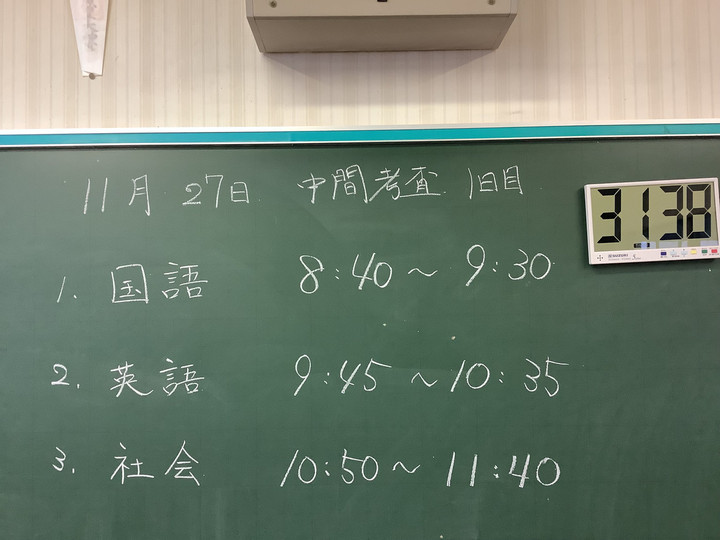 11月 27日 中間考査 1日目
3138
1. 国語 8:40 ~ 9:30
2. 英語 9:45 ~ 10:35
3. 社会 10:50 ~ 11:40